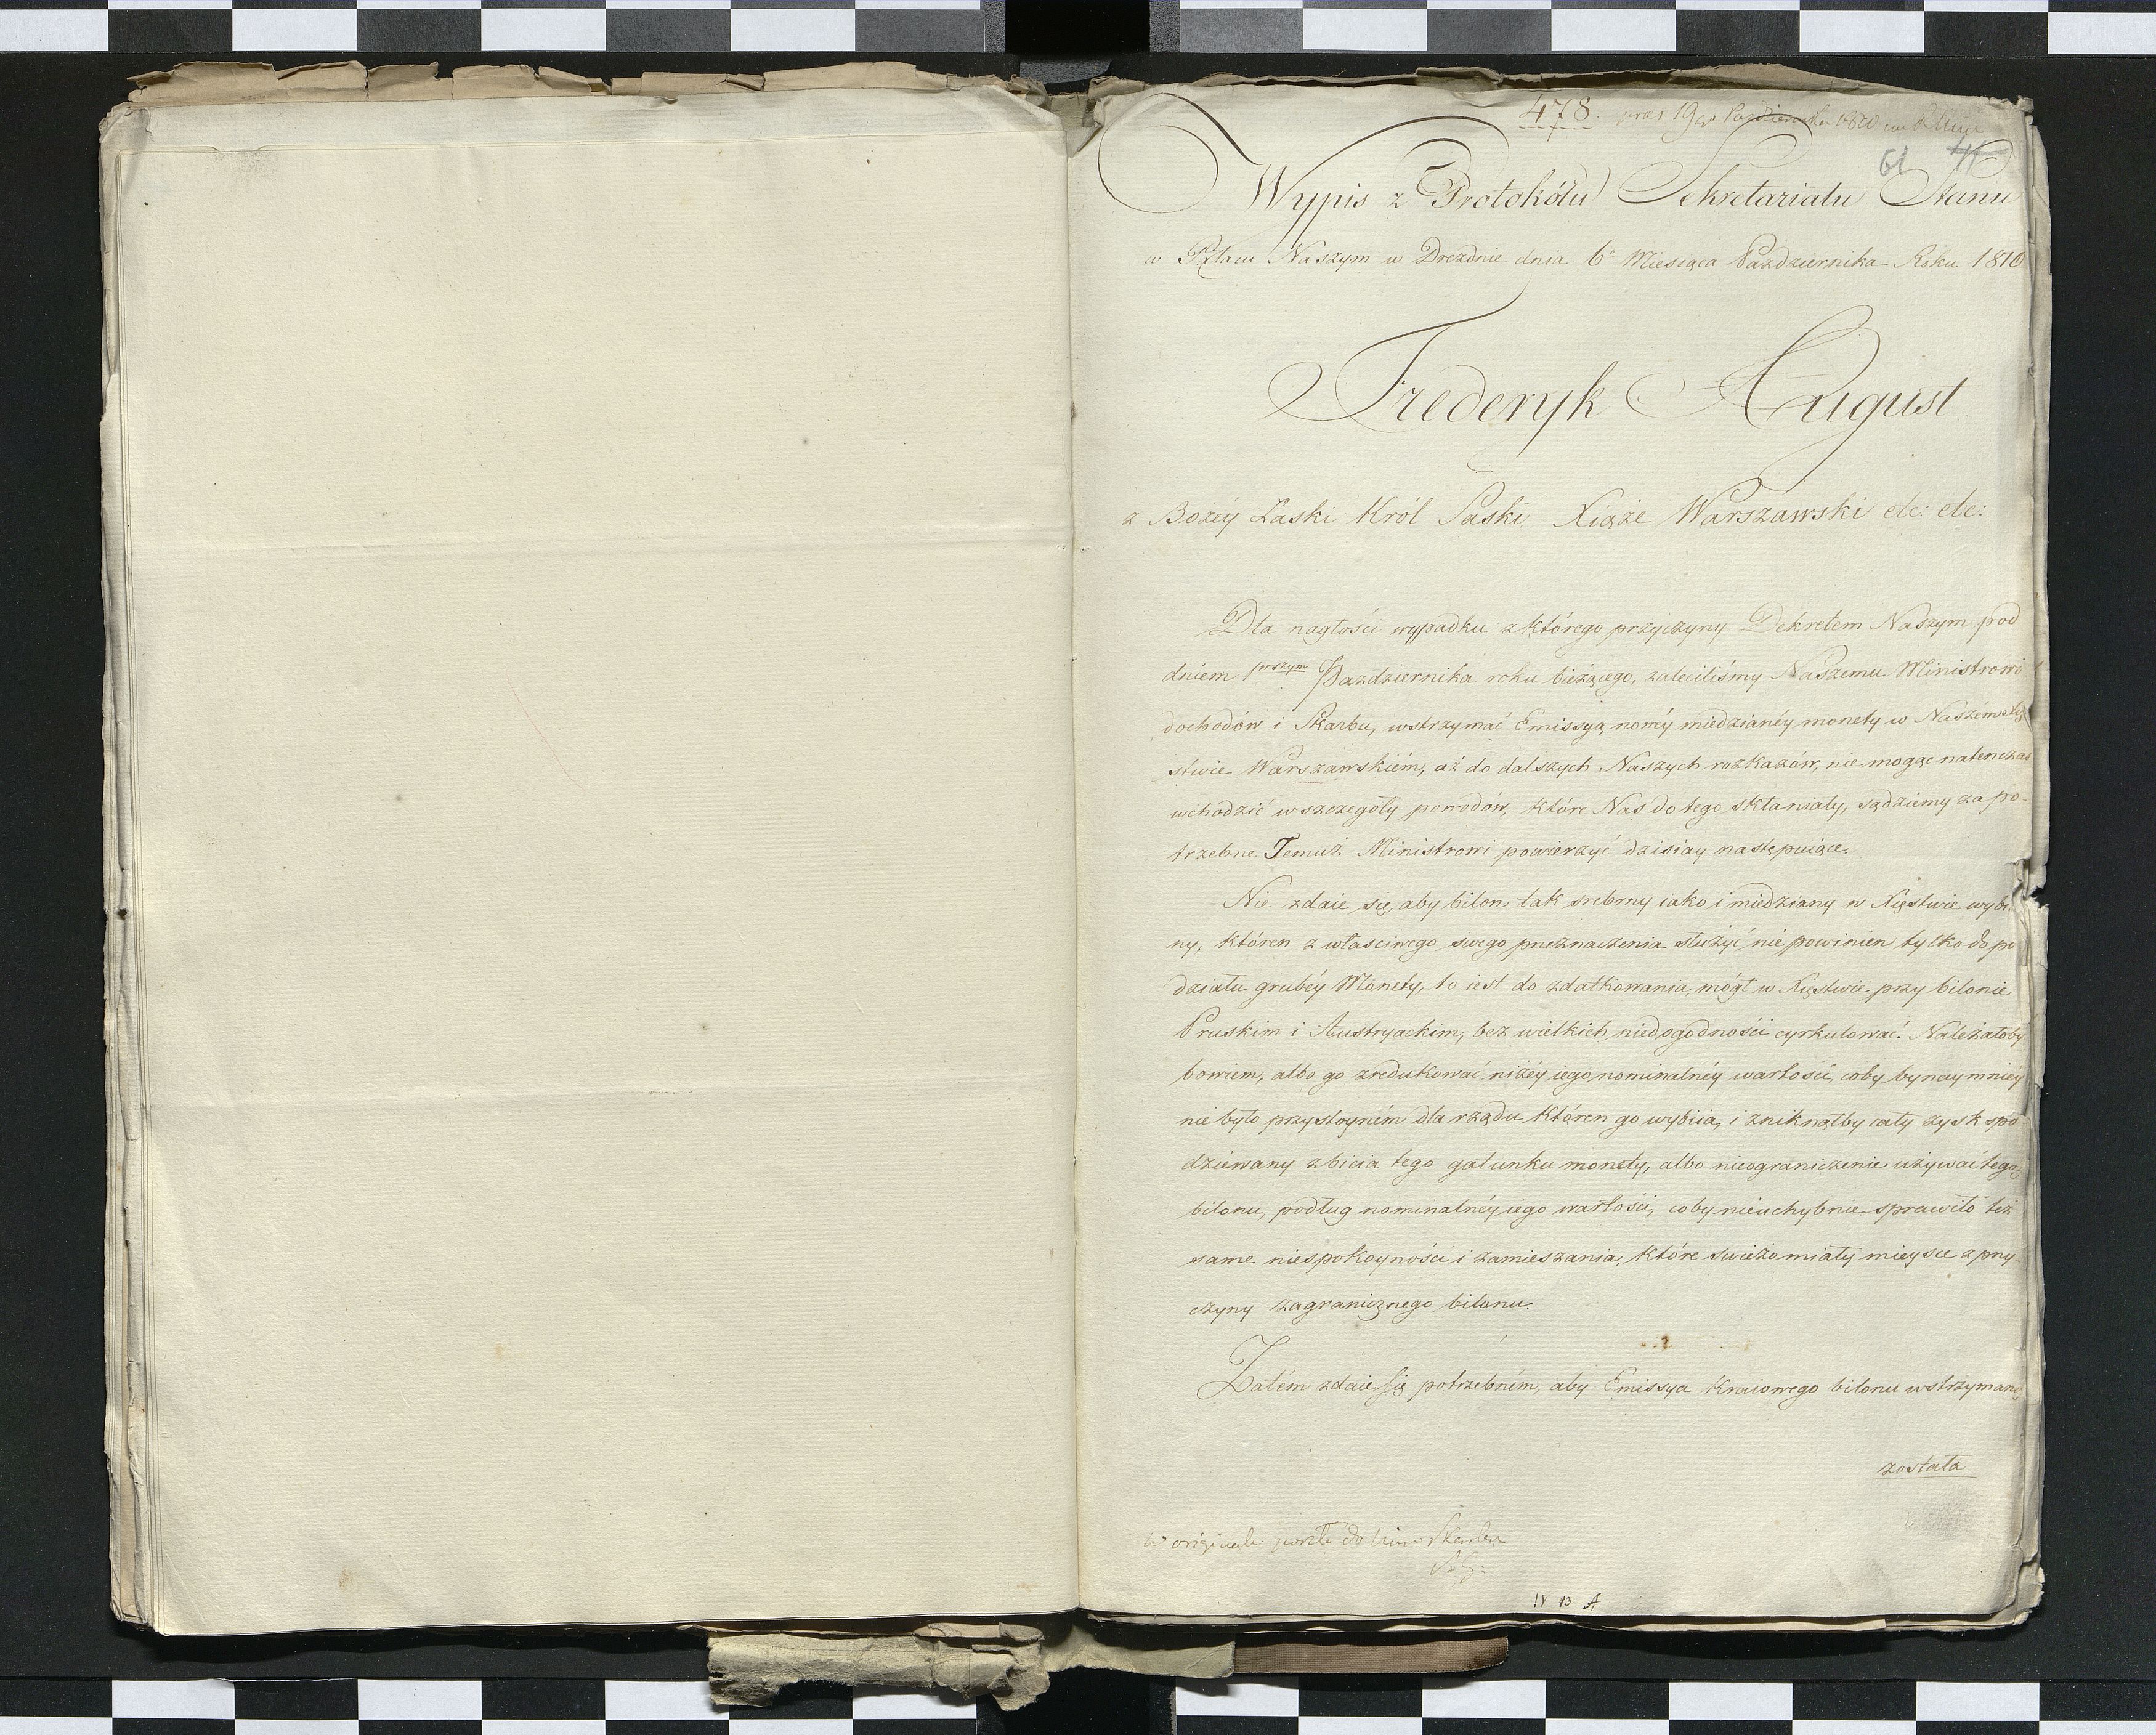 478. 19 Października 1810
61 41
Wypis z Protokółu Sekretariatu Stanu
w Pałacu Naszym w Dreznie dnia 6º Miesiąca Października Roku 1810
Frederyk August
z Bożéy Łaski Król Saski, Xiąże Warszawski etc: etc:
Dla nagłości wypadku z którego przyczyny Dekretem Naszym pod
dniem 1wszym Października roku bieżącego, zaleciliśmy Naszemu Ministrowi
dochodów i Skarbu, wstrzymać Emissyą nowéy miedzianéy monety w Naszém
stwie Warszawskiém, aż do dalszych Naszych rozkazów, nie mogąc natenczas
wchodzić w szczegóły powodów, które Nas do tego skłaniały, sądziemy za po-
trzebne Temuż Ministrowi powierzyć dzisiay następuiące.
Nie zdaie się, aby bilon tak srebrny iako i miedziany w Xięstwie wybi-
ny, któren z własciwego swego przeznaczenia służyć nie powinien tylko do po
działu grubéy Monety, to iest do zdatkowania, mógł w Xięstwie przy bilonie
Pruskim i Austryackim, bez wielkich niedogodności cyrkulować. Należałoby
bowiem, albo go zredukować niżéy iego nominalnéy wartości, coby bynaymniéy
nie było przystoyném dla rządu któren go wybiia, i zniknąłby cały zysk spo
dziéwany z bicia tego gatunku monety, albo nieograniczenie używać tego
bilonu, podług nominalnéy iego wartości, coby nieuchybnie sprawiło też
same niespokoyności i zamieszania, które swieżo miały mieysce z przy-
czyny zagranicznego bilonu.
Zatém zdaie się potrzebném, aby Emissya Kraiowego bilonu wstrzymaną
została
w originale do Skarbu
IV 13 A